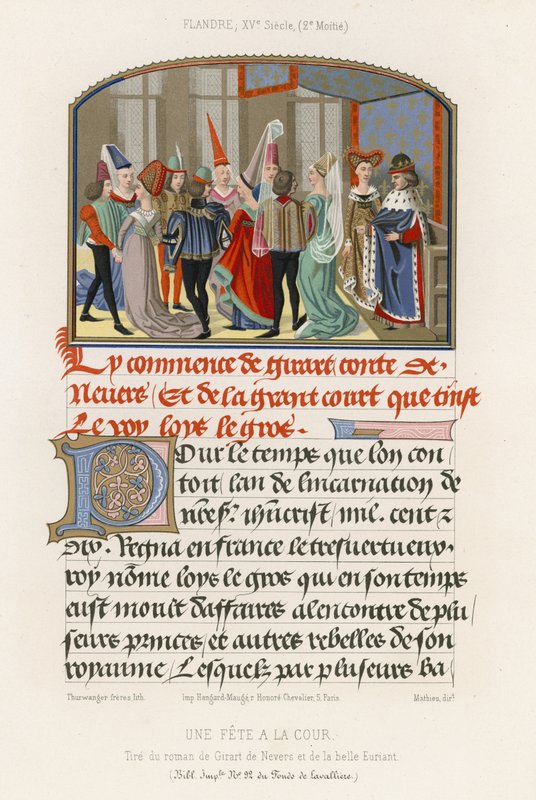 FLANDRE, XVe Siècle, (2e Moitié)
Cy commence de Girart conte de
Nevers / Et de la grant court que tinst
Le roy loys le gros.
Pour le temps que lon con
toit / lan de lincarnation de
nbeſ. ihucrist / mil. cent z
dix. Regna en france le tresvertueux.
roy nõme loys le gros qui en son temps
eust moult daffaires alencontre de plu /
seurs princes / et autres rebelles de son
royaume / Lesquelz par pluseurs ba /
Thurwanger frères, lith. Imp. Hangard-Maugé, r. Honoré-Chevalier, 5, Paris. Mathieu, dirt.
UNE FÊTE A LA COUR.
Tiré du roman de Girart de Nevers et de la belle Euriant.
(Bibl. Imple. No. 92 du Fonds de Lavallière.)